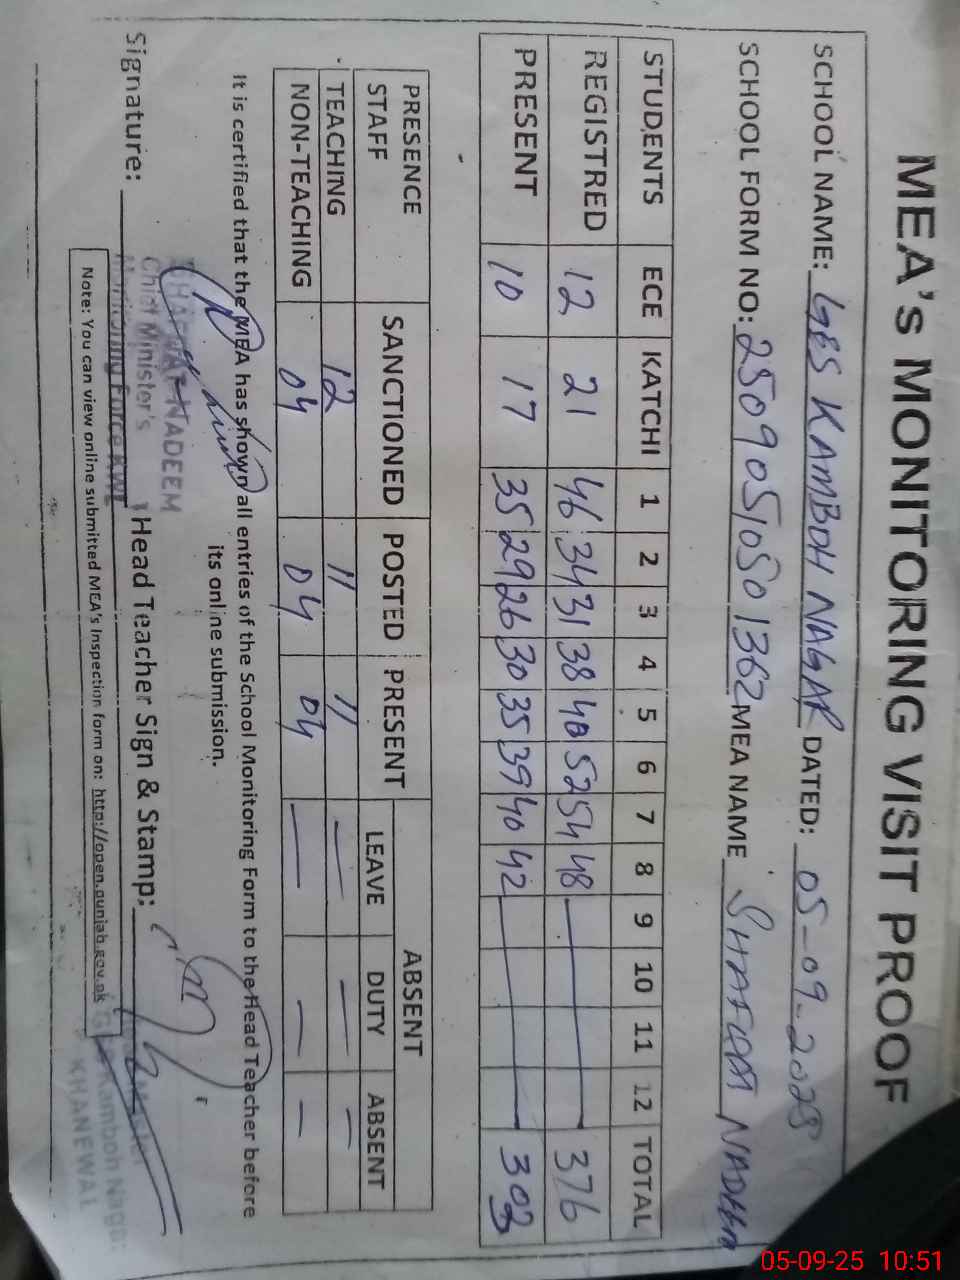 MEA's MONITORING VISIT PROOF
SCHOOL NAME: GES KAMBOH NAGAR DATED: 05-09-2025
SCHOOL FORM NO: 250905105001362 MEA NAME SHAFQAT NADEEM
STUDENTS ECE KATCHI 1 2 3 4 5 6 7 8 9 10 11 12 TOTAL
REGISTRED 12 21 46 34 31 38 40 52 54 48 — 376
PRESENT 10 17 35 29 26 30 35 39 40 42 — 303
PRESENCE STAFF SANCTIONED POSTED PRESENT ABSENT
LEAVE DUTY ABSENT
TEACHING 12 11 11 — — —
NON-TEACHING 04 04 04 — — —
It is certified that the MEA has shown all entries of the School Monitoring Form to the Head Teacher before
its online submission.
SHAFQAT NADEEM
Chief Minister's
Monitoring Force KWL
Signature: Head Teacher Sign & Stamp:
Kamboh Nagar
KHANEWAL
Note: You can view online submitted MEA's Inspection form on: http://open.punjab.gov.pk
05-09-25 10:51